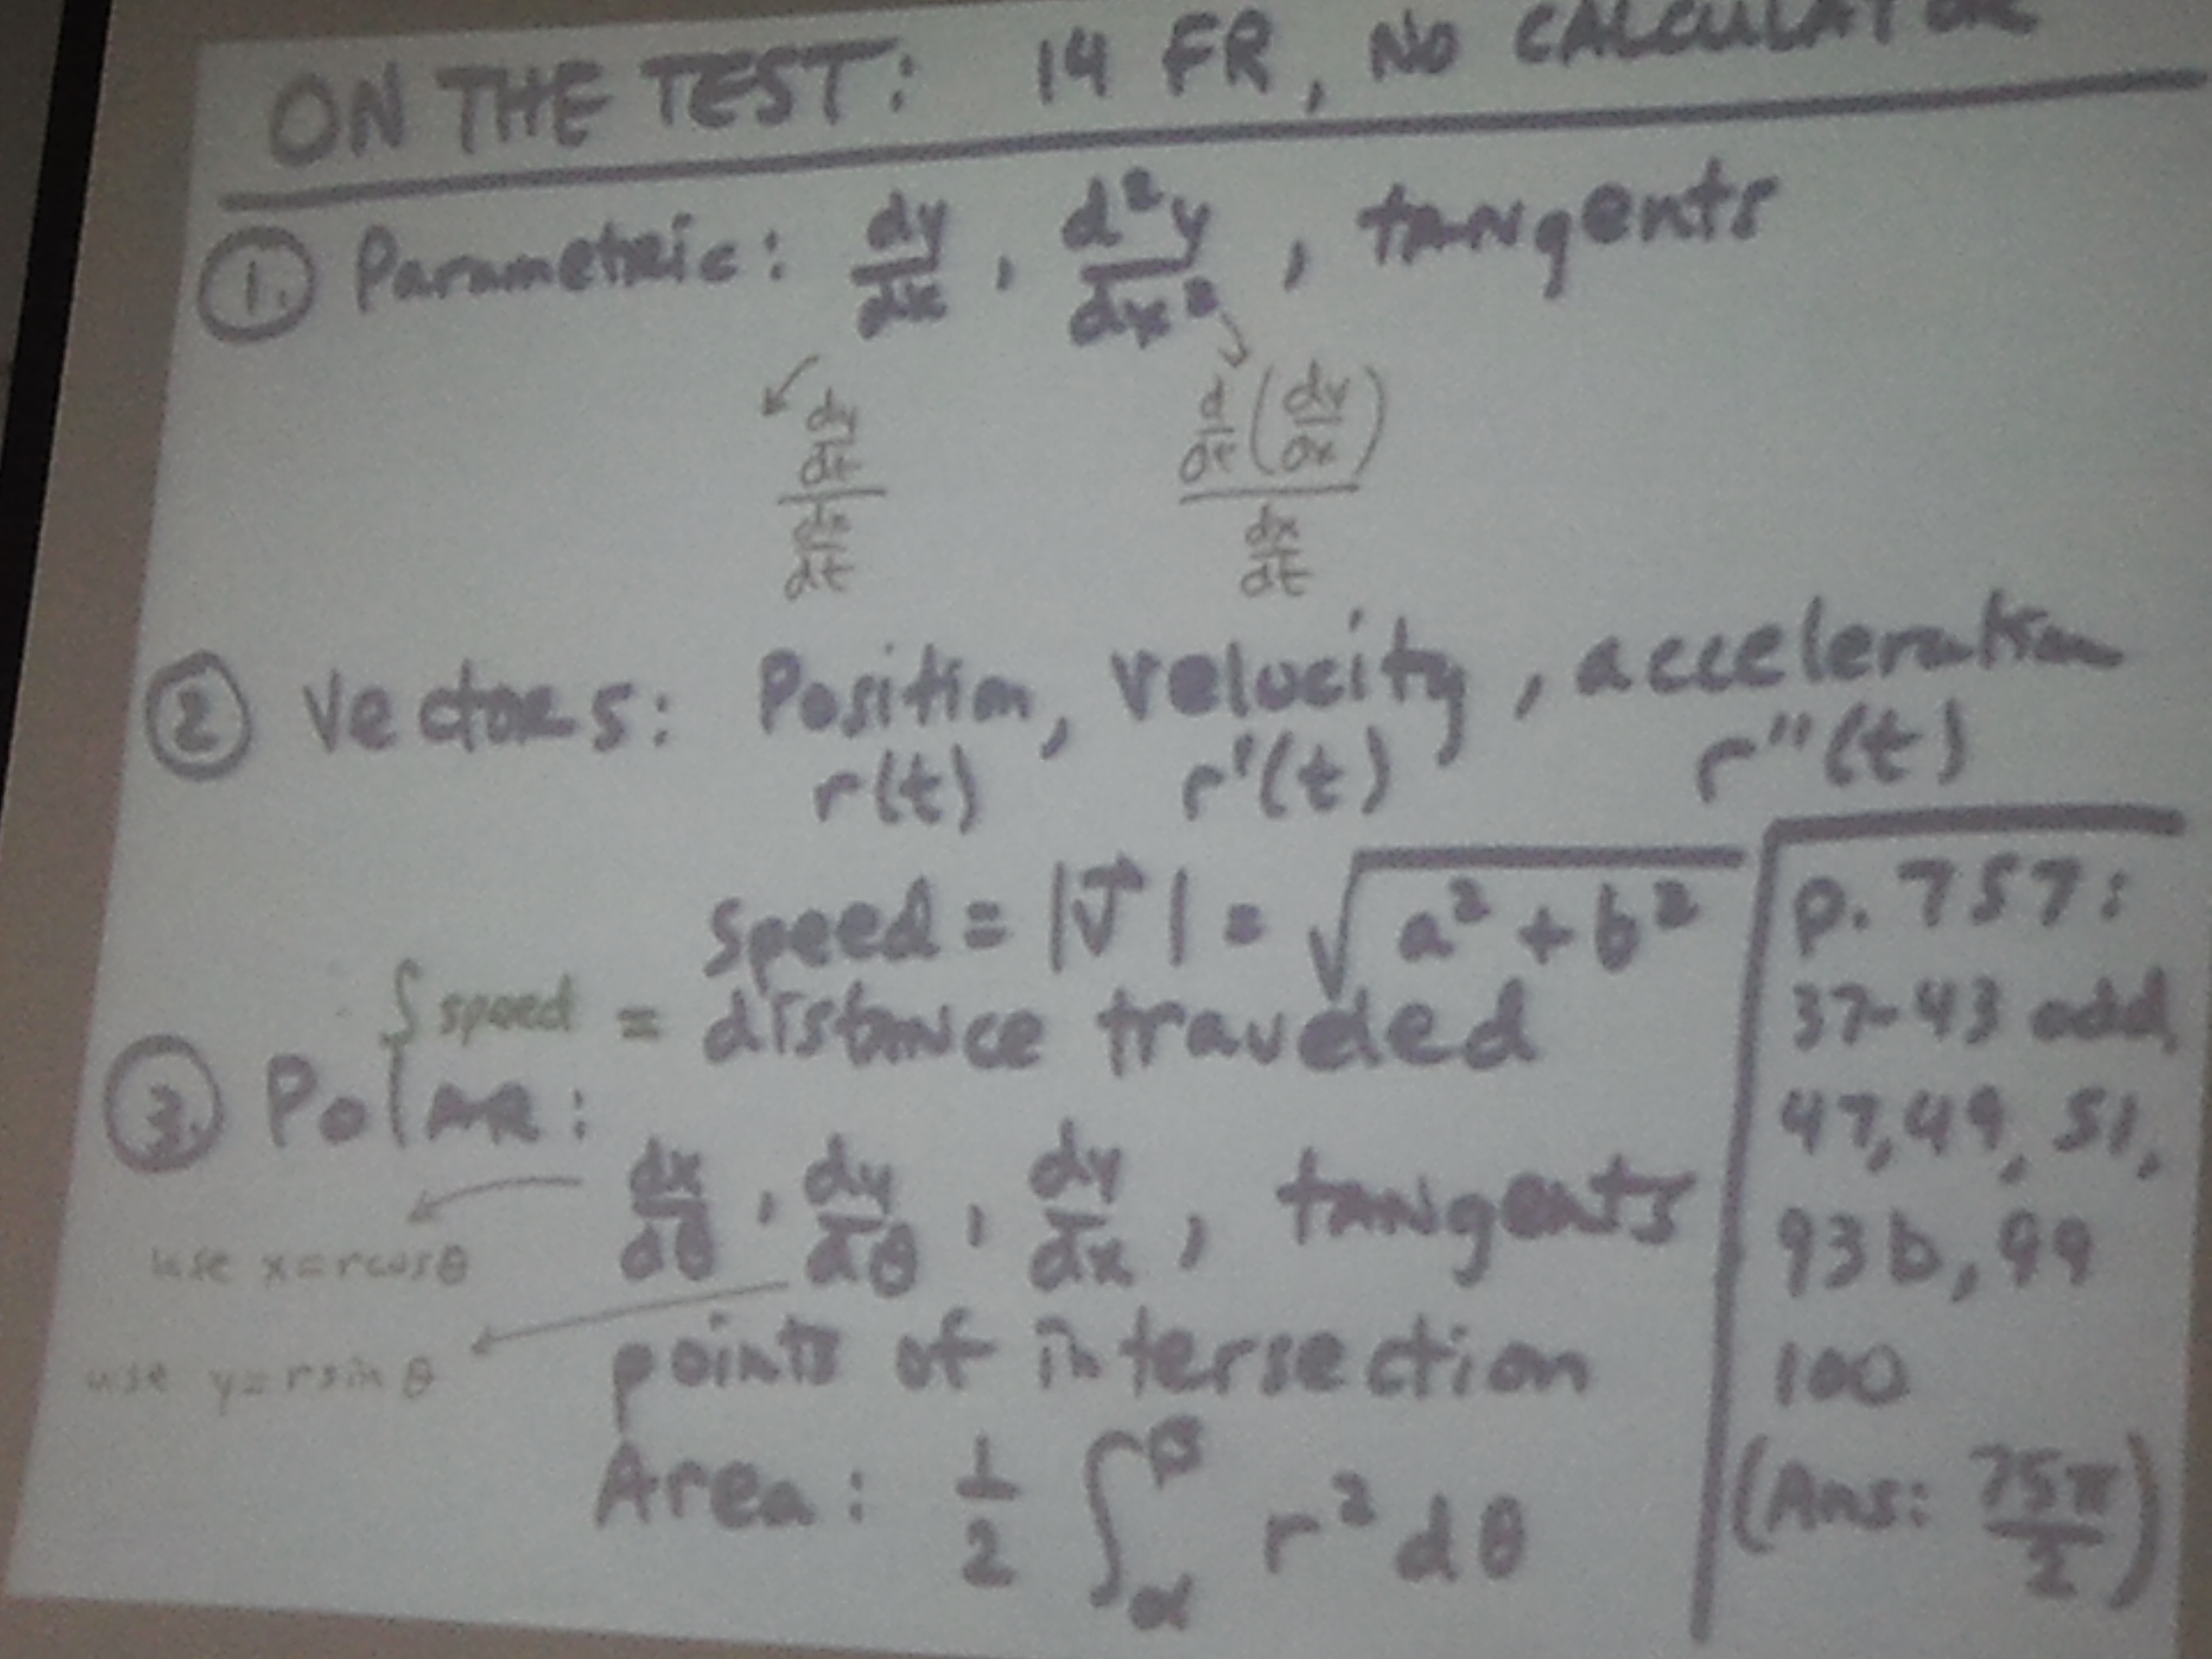 ON THE TEST: 14 FR, NO CALCULATOR
1. Parametric: dy/dx, d²y/dx², tangents
dy/dt / dx/dt
d/dt (dy/dx) / dx/dt
2 Vectors: Position, velocity, acceleration
r(t) r'(t) r"(t)
speed = |v⃗| = √(a² + b²)
∫ speed = distance traveled
3. Polar:
dx/dθ, dy/dθ, dy/dx, tangents
use x=rcosθ
points of intersection
use y=rsinθ
Area: 1/2 ∫_α^β r² dθ
p. 757:
37-43 odd,
47, 49, 51,
93b, 99
100
(Ans: 75π/2)